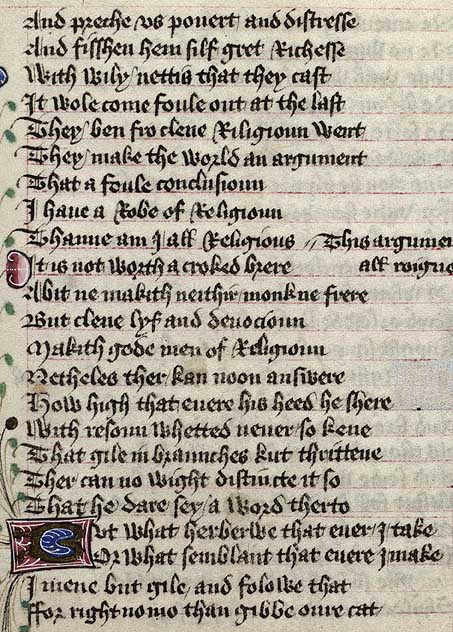 And preche vs pouert and distresse
And fisshen hem silf gret Richesse
With Wily nettis that they cast
It wole come foule out at the last
They ben fro clene Riligioun went
They make the world an argument
That a foule conclusioun
I haue a Robe of Religioun
Thanne am I all Religious This argumen
It is not worth a croked brere all roigno
Abit ne makith neithir monk ne frere
But clene lyf and deuocioun
Makith gode men of Religioun
Netheles ther kan noon answere
How high that euere his heed he shere
With resoun whetted neuer so kene
That gile in braunches kut thrittene
Ther can no wight distincte it so
That he dare sey a word therto
But what herberwe that euer I take
Or what semblant that euere I make
I mene but gile and folowe that
ffor right no mo than gibbe oure cat